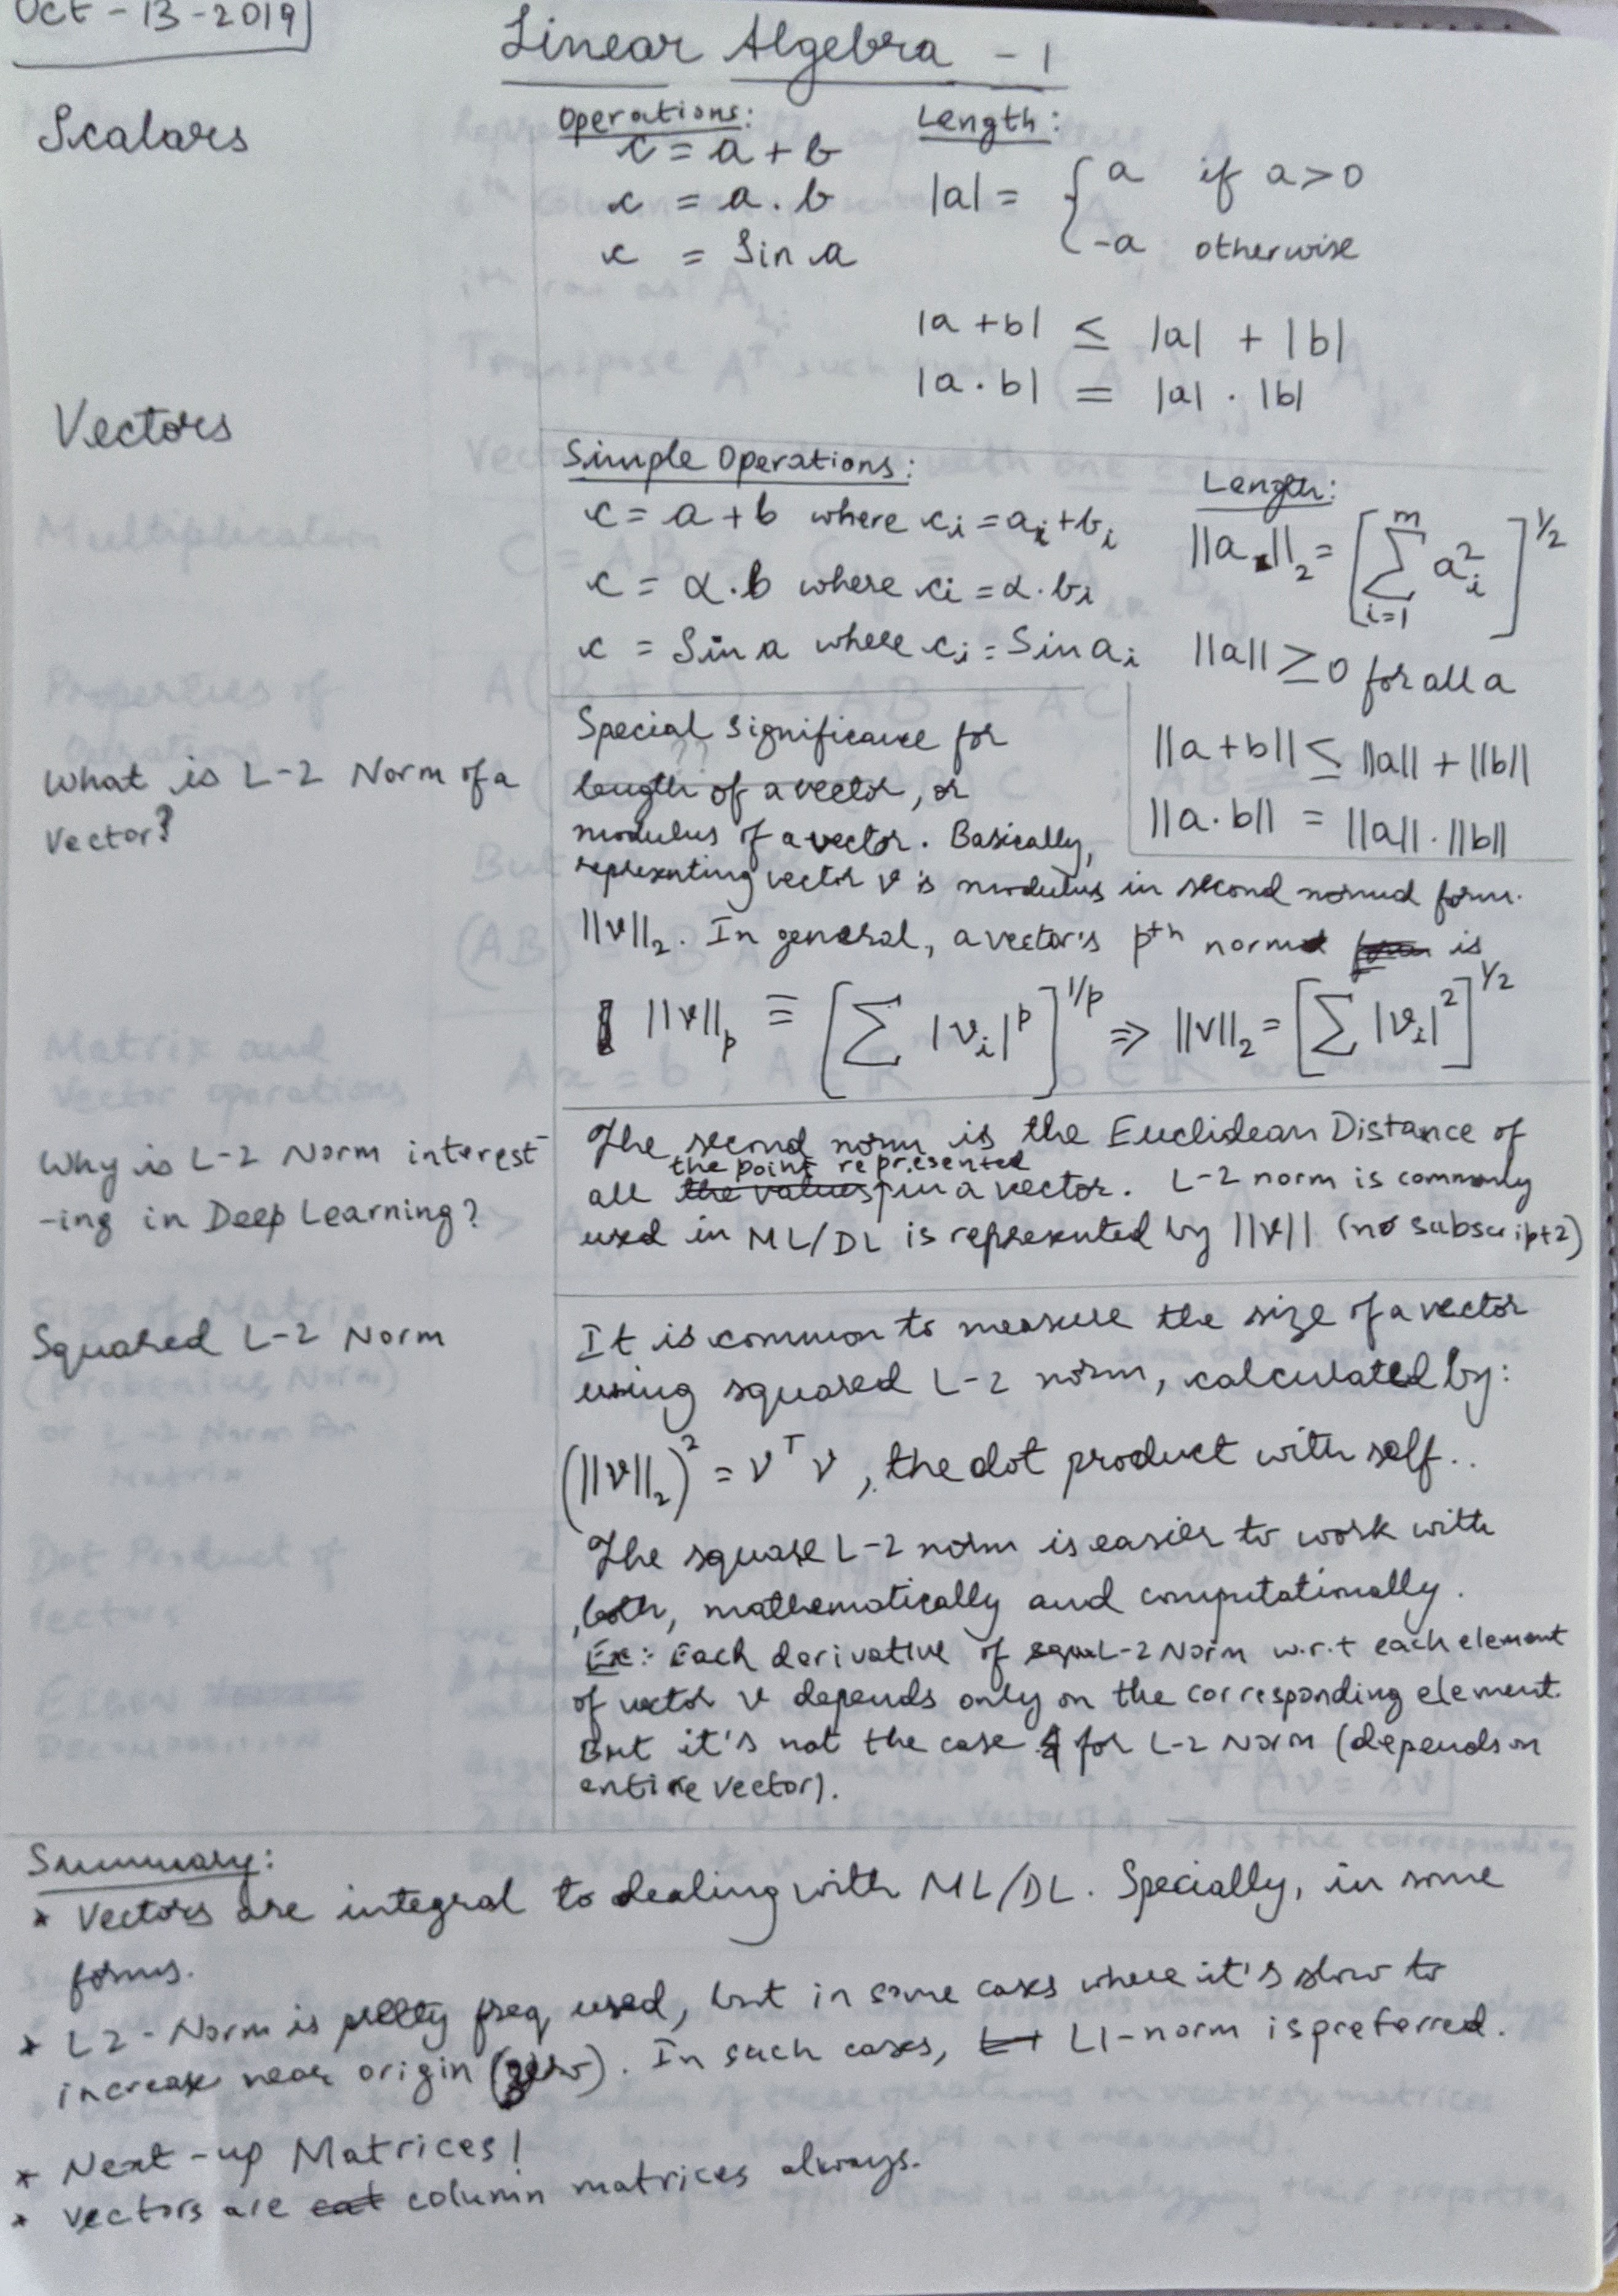 Oct-13-2019
Linear Algebra - 1
Scalars
Operations:
c = a + b
c = a . b
c = Sin a
Length:
|a| = { a if a > 0
-a otherwise
|a + b| ≤ |a| + |b|
|a . b| = |a| . |b|
Vectors
Simple Operations:
c = a + b where ci = ai + bi
c = α . b where ci = α . bi
c = Sin a where ci = Sin ai
Length:
||a||₂ = [ Σ_{i=1}^{m} a_i² ]^{1/2}
||a|| ≥ 0 for all a
||a + b|| ≤ ||a|| + ||b||
||a . b|| = ||a|| . ||b||
What is L-2 Norm of a
Vector?
Special significance for
length of a vector, or
modulus of a vector. Basically,
representing vector v is modulus in second normed form.
||v||₂. In general, a vector's pth norm is
||v||_p ≡ [ Σ |v_i|^p ]^{1/p} => ||v||₂ = [ Σ |v_i|² ]^{1/2}
Why is L-2 Norm interest
-ing in Deep Learning?
The second norm is the Euclidean Distance of
the point represented
all the values in a vector. L-2 norm is commonly
used in ML/DL is represented by ||v|| (no subscript 2)
Squared L-2 Norm
It is common to measure the size of a vector
using squared L-2 norm, calculated by:
(||v||₂)² = v^T v, the dot product with self..
The square L-2 norm is easier to work with
both, mathematically and computationally.
Ex: Each derivative of squ L-2 Norm w.r.t each element
of vector v depends only on the corresponding element.
But it's not the case for L-2 Norm (depends on
entire vector).
Summary:
* Vectors are integral to dealing with ML/DL. Specially, in some
forms.
* L2-Norm is pretty freq used, but in some cases where it's slow to
increase near origin (zero). In such cases, L1-norm is preferred.
* Next-up Matrices!
* Vectors are cat column matrices always.